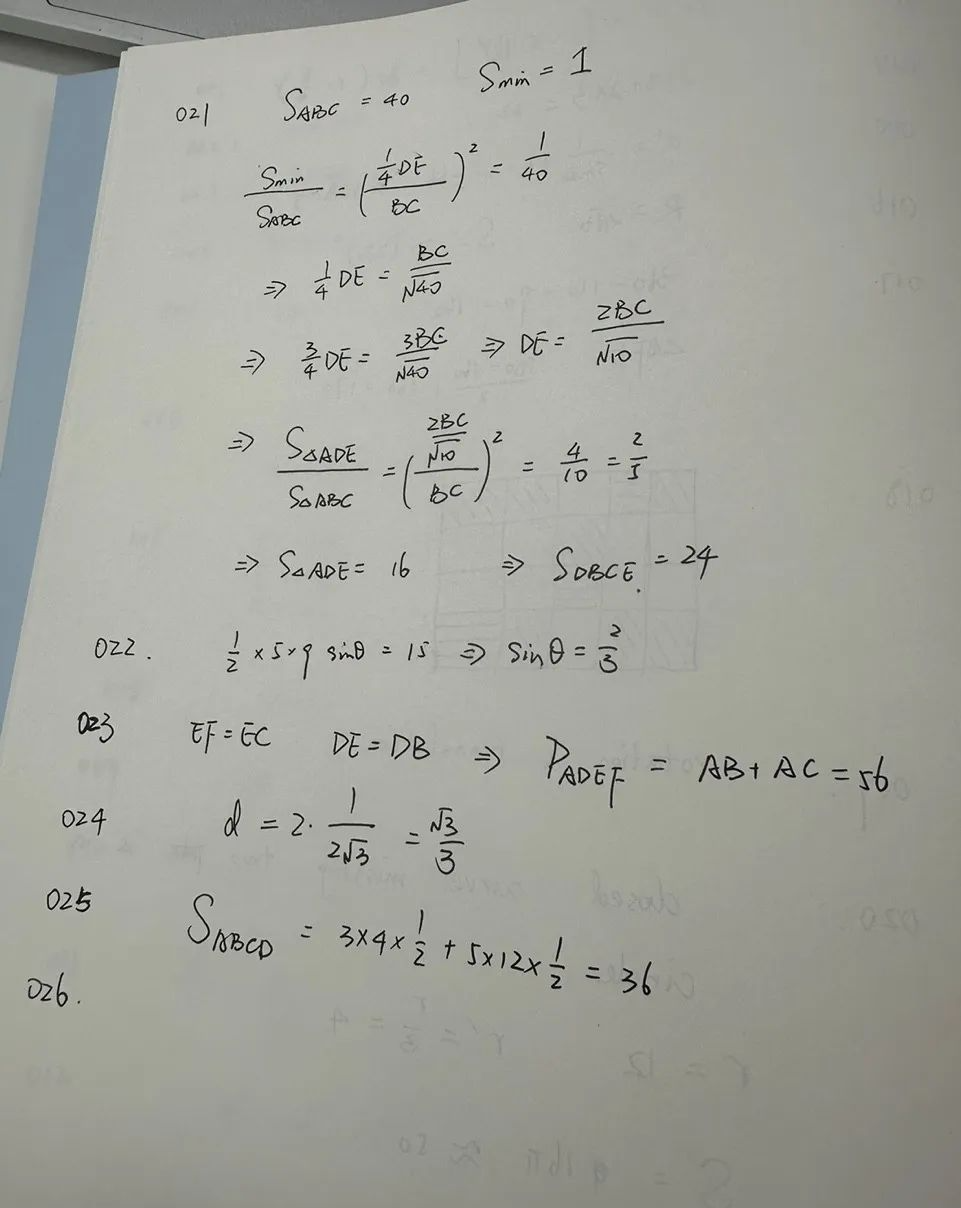 021 S_ABC = 40 S_min = 1
S_min / S_ABC = ( (1/4 DE) / BC )² = 1/40
⇒ 1/4 DE = BC/√40
⇒ 3/4 DE = 3BC/√40 ⇒ DE = 2BC/√10
⇒ S△ADE / S△ABC = ( (2BC/√10) / BC )² = 4/10 = 2/5
⇒ S△ADE = 16 ⇒ S_DBCE = 24
022. 1/2 × 5 × 9 sinθ = 15 ⇒ sinθ = 2/3
023 EF = EC DE = DB ⇒ P_ADEF = AB + AC = 56
024 d = 2 · 1/2√3 = √3/3
025 S_ABCD = 3×4×1/2 + 5×12×1/2 = 36
026.